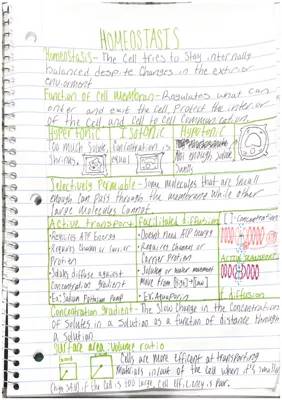 HOMEOSTASIS
Homeostasis- The Cell tries to Stay internally
balanced despite Changes in the exterior
enviorment
Function of Cell Membrane- Regulates what can
enter and exit the cell, Protect the interior
of the cell and cell to cell communication.
Hypertonic Isotonic Hypotonic
Too much Solute, Concentration is Not enough solute,
Shrinks equal Swells
Selectively Permable- Some molecules that are small
enough can pass through the membrane while other
large molecules cannot
Active transport facilitated diffusion [ ]=Concentration
Requires ATP Energy Doesn't Need ATP Energy
Requires Channel or Carrier Requires Channel or
Protien Carrier Protien
Solutes diffuse against Solutes or water movement
Concentration gradient Move from [high]→[low]
Ex: Sodium Potassium Pump Ex: Aquaporin
Active transport
diffusion
Concentration Gradient- The Slow Change in the Concentrations
of Solutes in a Solution as a function of distance through
a Solution
Surface area:Volume ratio
Cells are more efficent at transporting
Materials in/out of the cell when it's small
(high SA:V) if the cell is too large, cell efficiency is poor.